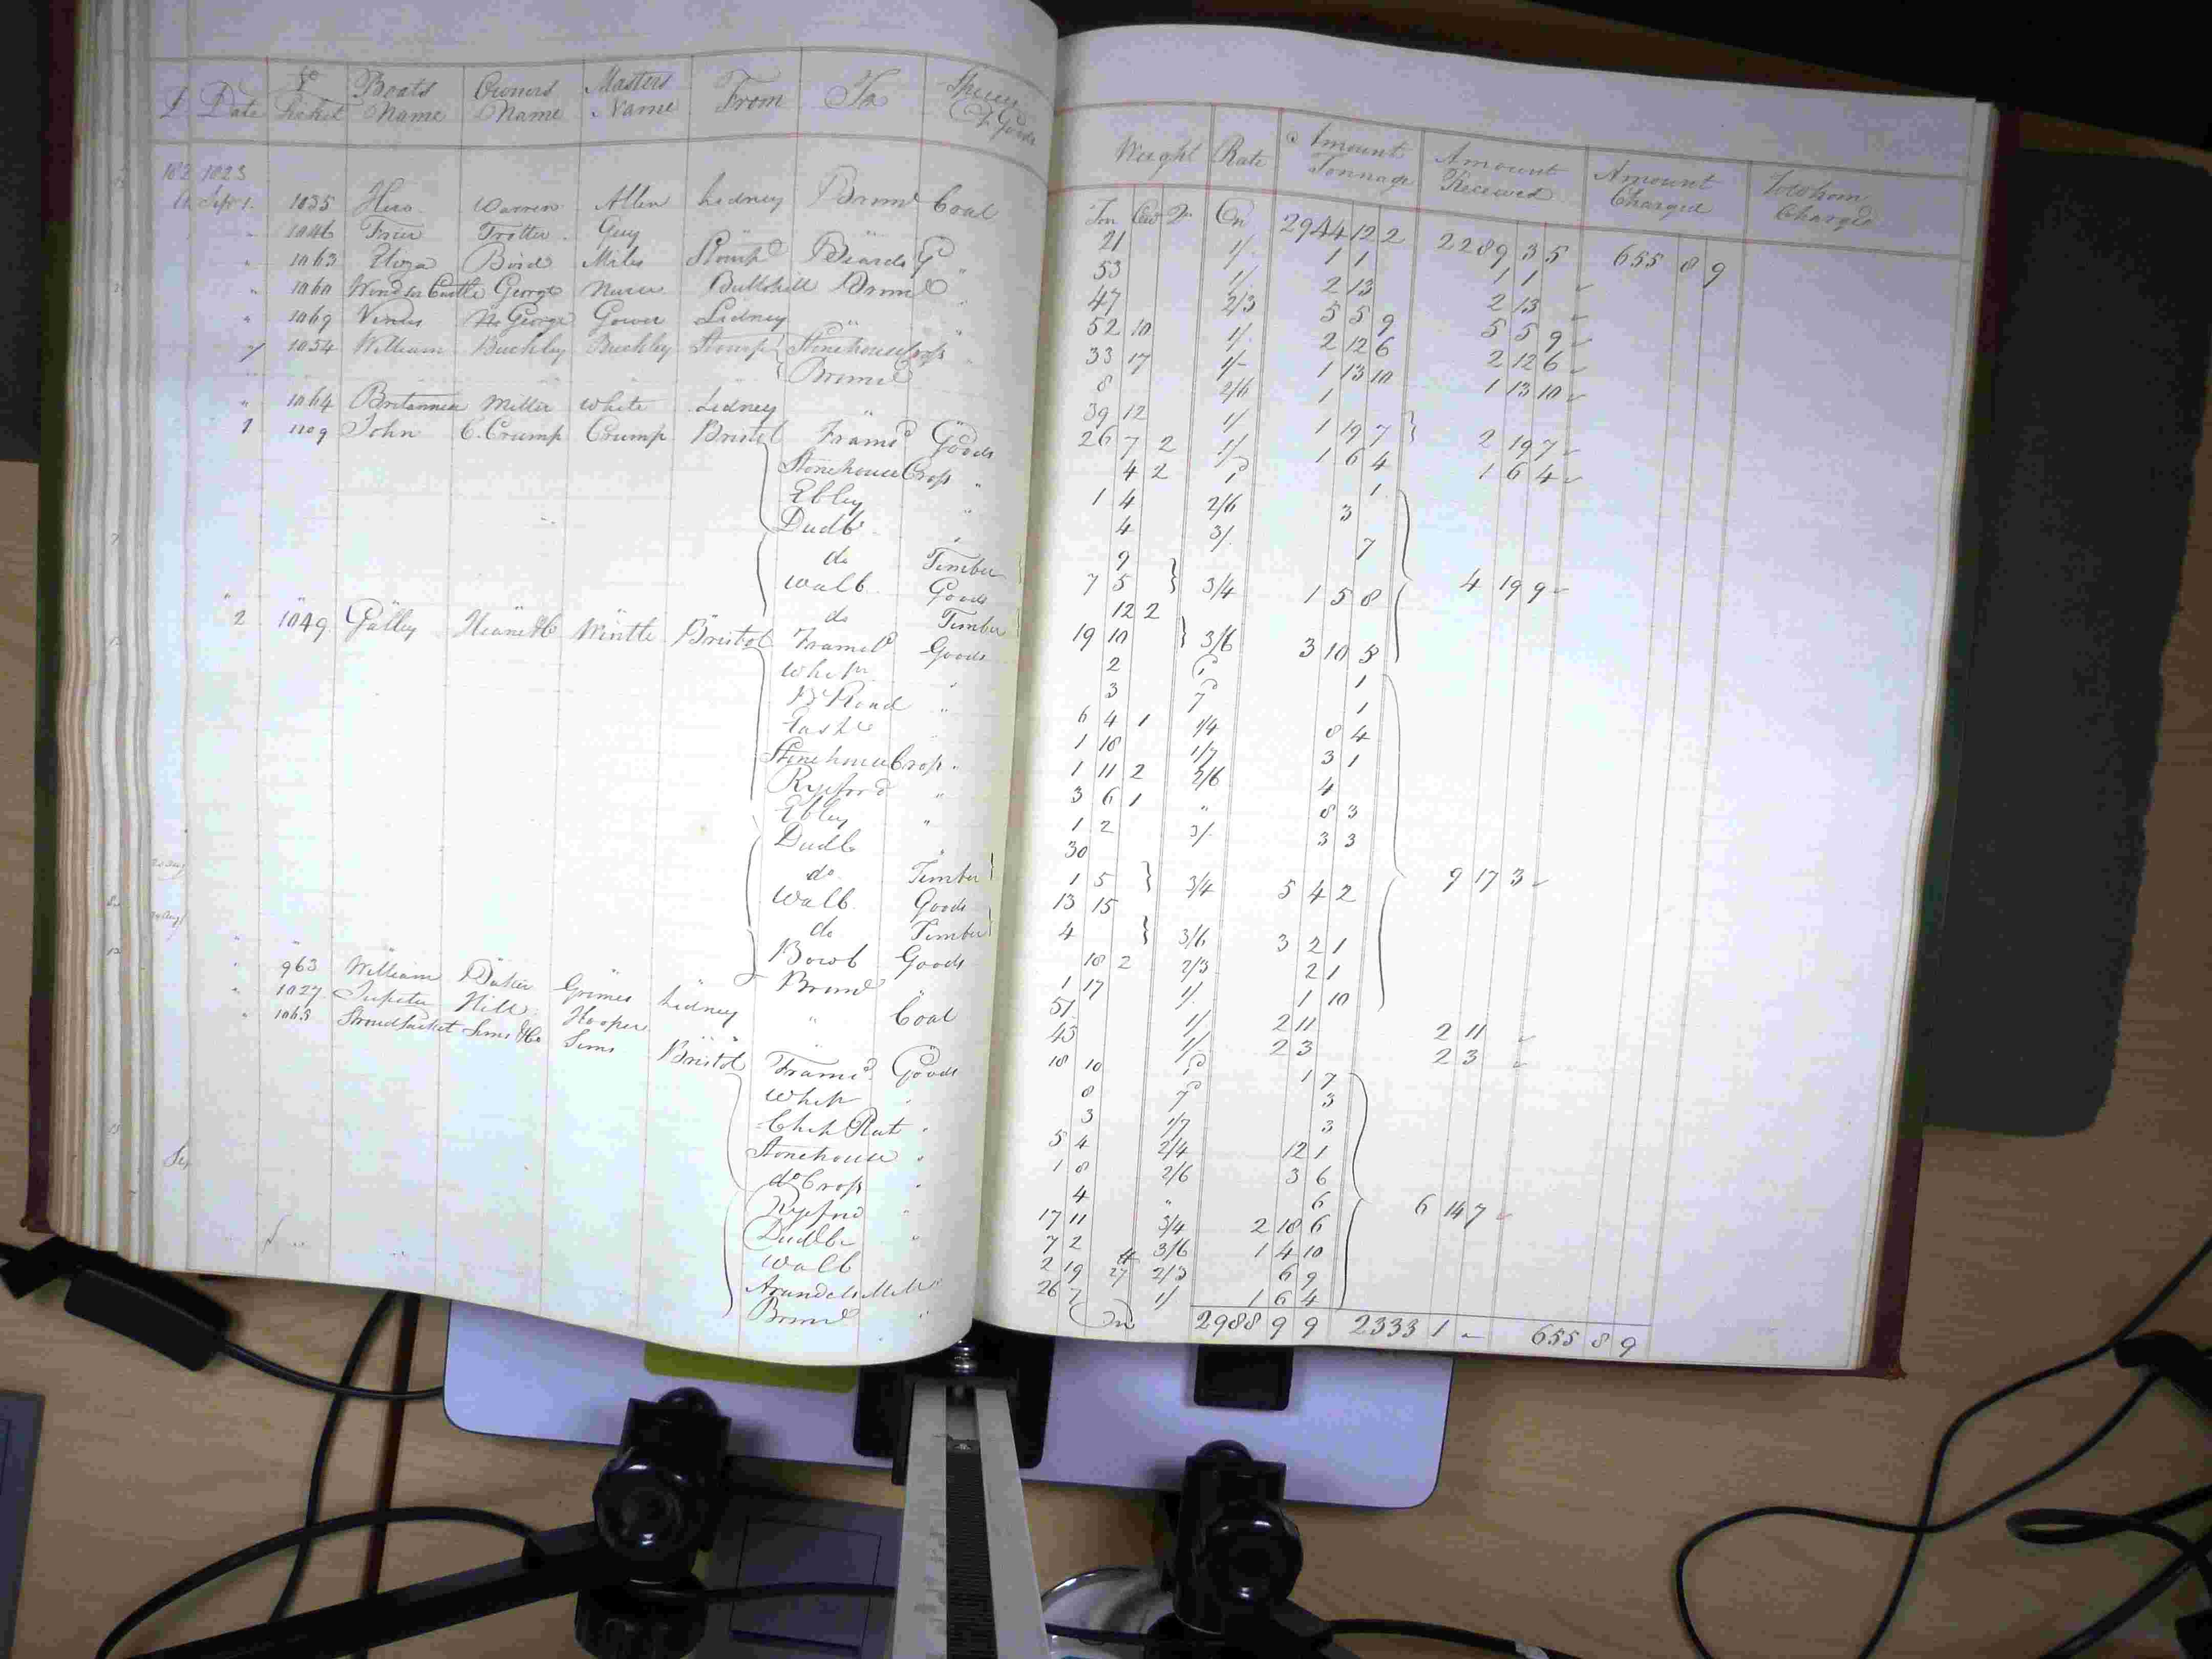 Date Ticket Boats Name Owners Name Masters Name From To Species of Goods Weight Rate Amount Tonnage Amount Received Amount Charged To whom Charged
1823 Ton Cwt Qr On 2944 12 2 2289 3 5 655 8 9
Sepr 1 1035 Hero Warren Allen Lidney Brimd Coal 21 1/. 1 1 1 1
" 1046 Trotter Guy " " " 53 1/. 2 13 2 13
" 1063 Eliza Bird Miles Stompd Beards " 47 2/3 5 5 9 5 5 9
" 1060 Windsor Castle George Nurse Bullohill Brimd " 52 10 1/. 2 12 6 2 12 6
" 1069 Venus Wm George Gower Lidney " " 33 17 1/- 1 13 10 1 13 10
1054 William Buckley Buckley Stompd Stonehouse Cross " 8 2/6 1
Brimd 39 12 1/ 1 19 7 2 19 7
" 1064 Britannia Miller White Lidney " " 26 7 2 1/ 1 6 4 1 6 4
1 1209 John C. Crump Crump Bristol Framd Goods 4 2 1d 1
Stonehouse Cross " 1 4 2/6 3
Ebley " 4 3/. 7
Dudb " 9
do Timber 7 5 3/4 1 5 8 4 19 9
Walb Goods 12 2
do Timber 19 10 3/6 3 10 5
2 1049 Galley Heane &Co Wintle Bristol Framd Goods 2 1d 1
Whitr " 3 7d 1
B Road " 6 4 1 1/4 8 4
" 1 18 1/7 3 1
Stonehouse Cross " 1 11 2 2/6 4
Ryeford " 3 6 1 " 8 3
Ebley " 1 2 3/. 3 3
Dudb " 30
do Timber 1 5 3/4 5 4 2 9 17 3
Walb Goods 13 15
do Timber 4 3/6 3 2 1
Bowb Goods 18 2 2/3 2 1
Brimd " 1 17 1/. 1 10
" 963 William Baker Grimes Lidney " Coal 51 1/ 2 11 2 11
" 1027 Jupiter Hill Hooper " " " 43 1/ 2 3 2 3
" 1063 Stroud Packet Sims &Co Sims Bristol Framd Goods 18 10 1d 1 7
Whitr " 8 7d 3
" 3 1/7 3
Stonehouse " 5 4 2/4 12 1
do Cross " 1 8 2/6 3 6
Ryeford " 4 " 6 6 14 7
Dudb " 17 11 3/4 2 18 6
Walb 7 2 3/6 1 4 10
Arundels Mill " 2 19 2/3 6 9
Brimd " 26 7 1/ 1 6 4
2988 9 9 2333 1 - 655 8 9